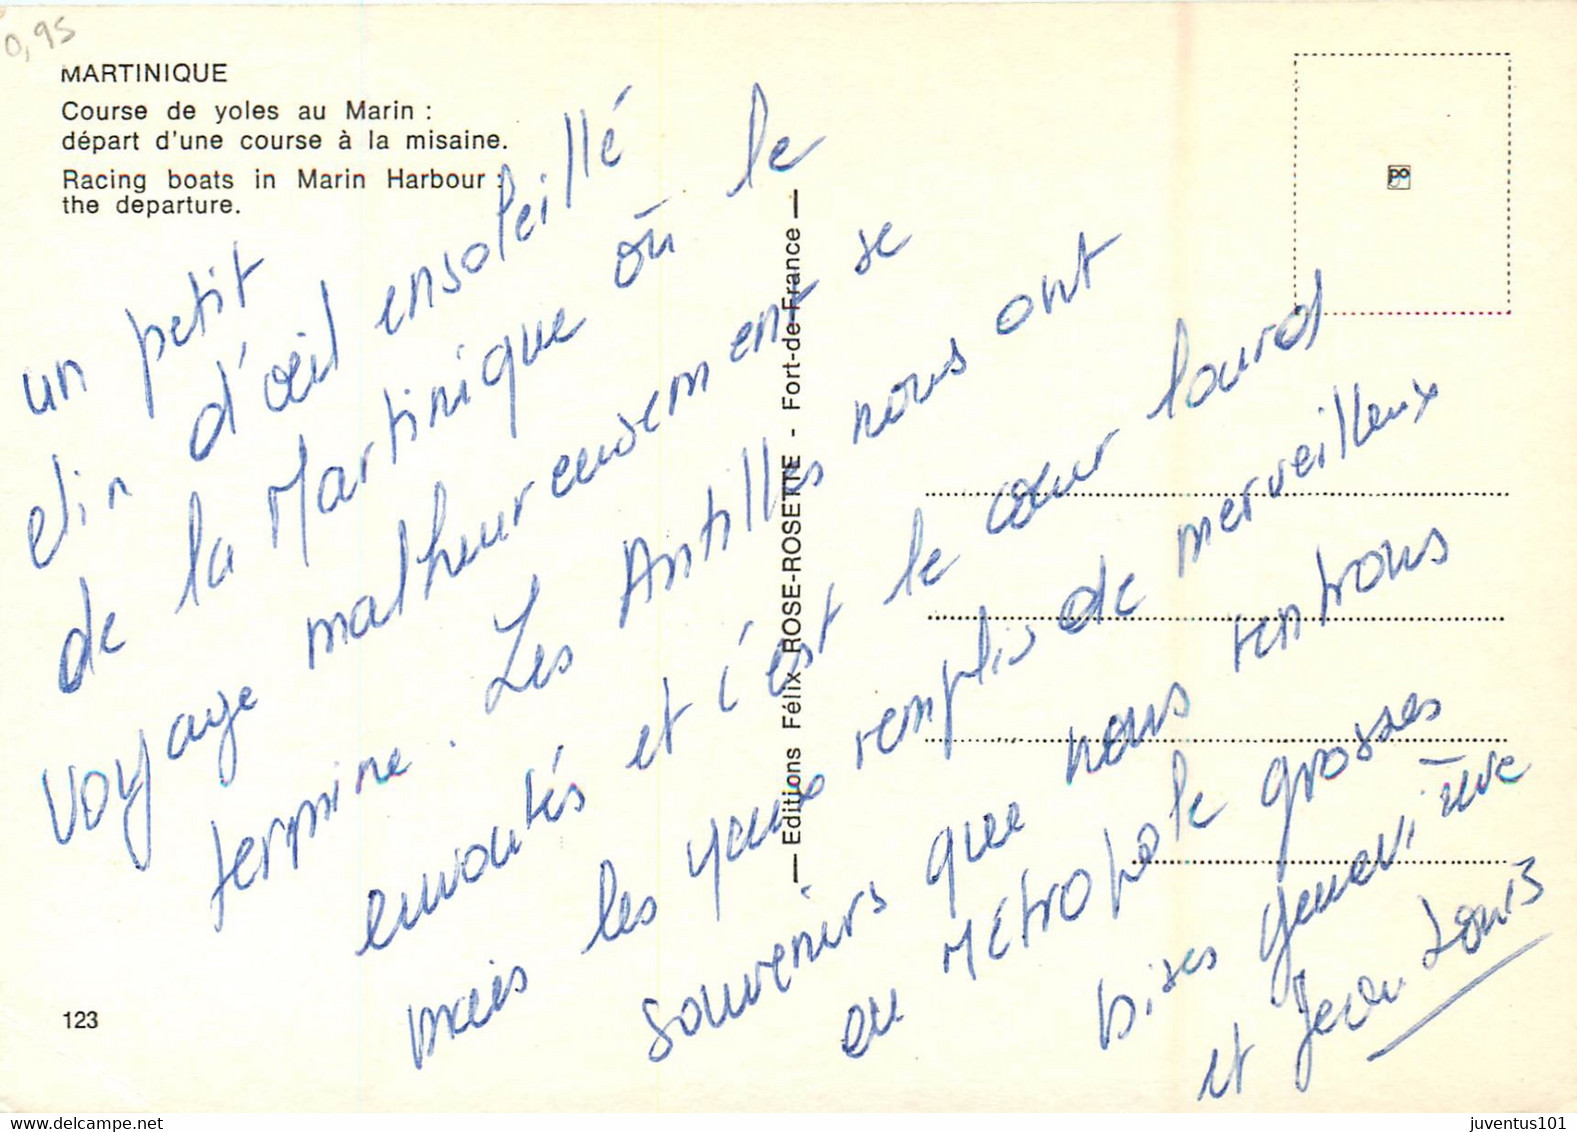 0,95
MARTINIQUE
Course de yoles au Marin :
départ d'une course à la misaine.
Racing boats in Marin Harbour :
the departure.
un petit
clin d'œil ensoleillé
de la Martinique où le
voyage malheureusement se
termine. Les Antilles nous ont
envoutés et c'est le cœur lourd
mais les yeux remplis de merveilleux
souvenirs que nous rentrons
en Métropole grosses
bises Geneviève
et Jean Louis
— Editions Félix ROSE-ROSETTE - Fort-de-France —
po
123
juventus101